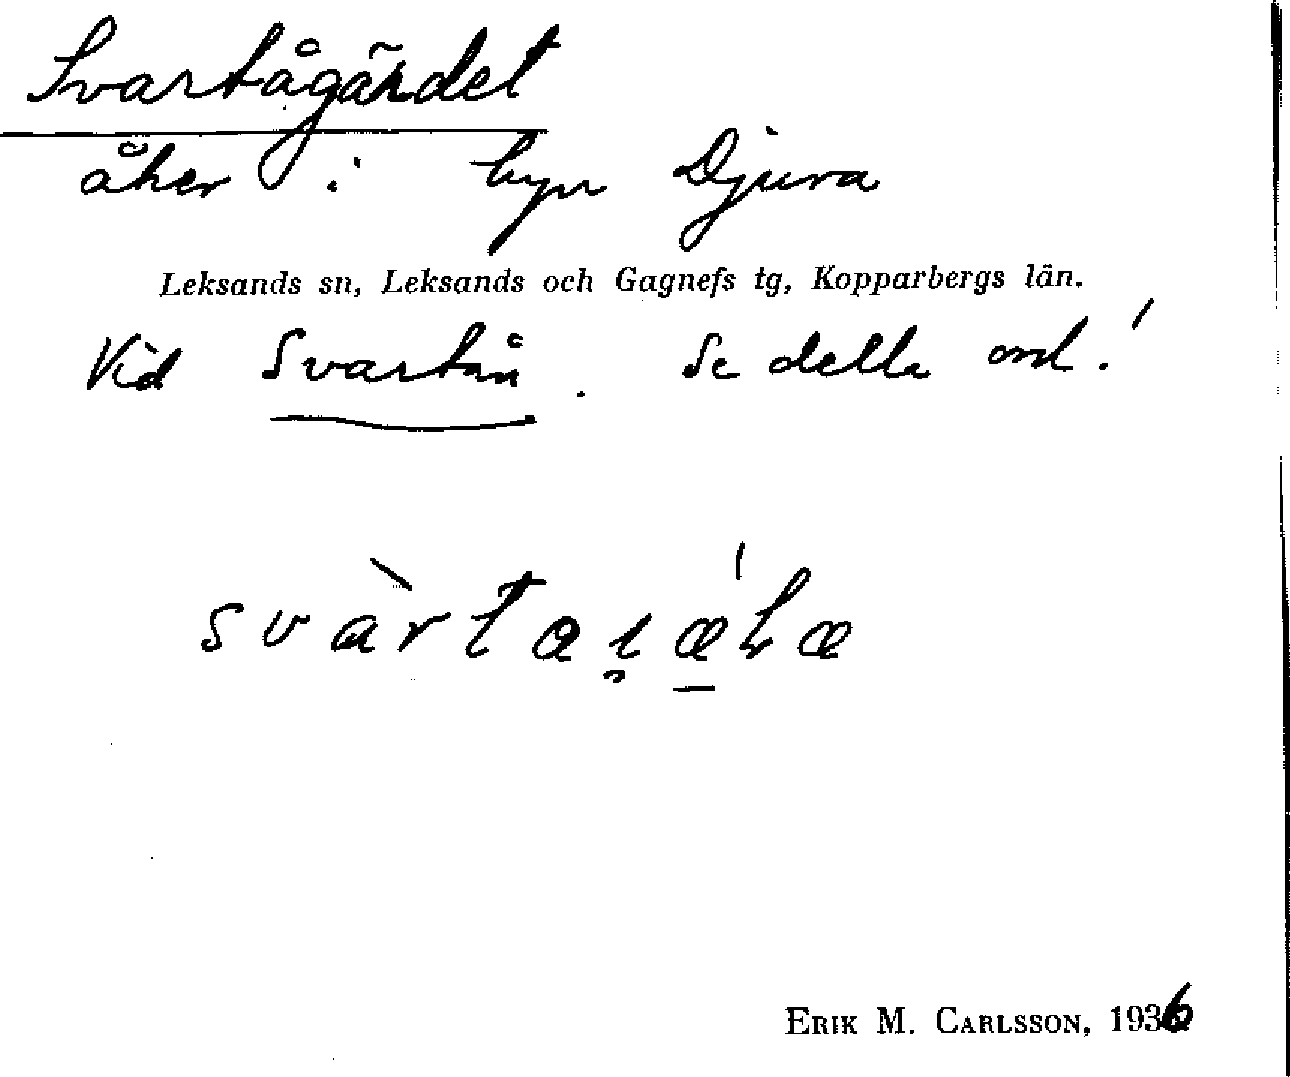 Svartågärdet
åker i byn Djura
Leksands sn, Leksands och Gagnefs tg, Kopparbergs län.
Vid Svartån. Se detta ord!
ERIK M. CARLSSON, 1936